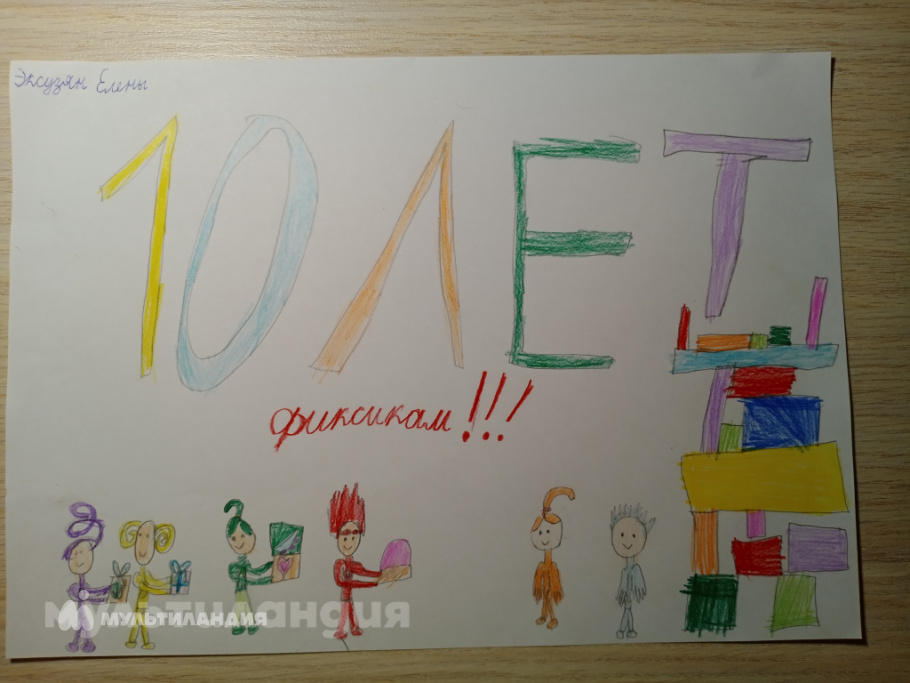 Эксузян Елены
10 ЛЕТ
фиксикам!!!
мультиландия
МУЛЬТИЛАНДИЯ